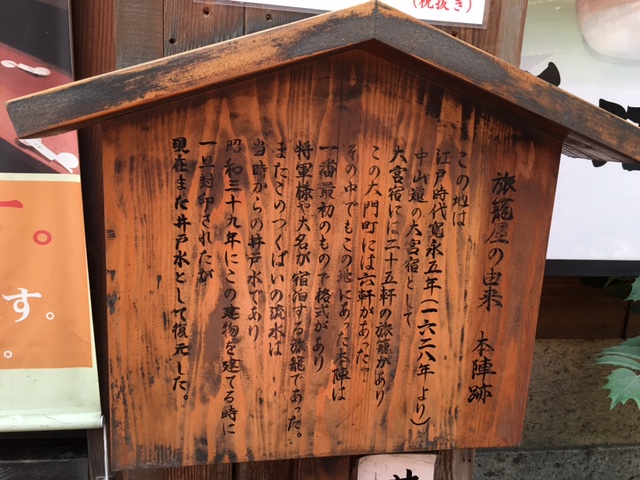 (税抜き)
旅籠屋の由来　本陣跡
この地は
江戸時代寛永五年(一六二八年より)
中山道の大宮宿として
大宮宿には二十五軒の旅籠があり
この大門町には六軒があった。
その中でもこの地にあった本陣は
一番最初のもので格式があり
将軍様や大名が宿泊する旅籠であった。
またこのつくばいの流水は
当時からの井戸水であり
昭和三十九年にこの建物を建てる時に
一旦封印されたが
現在また井戸水として復元した。
す。